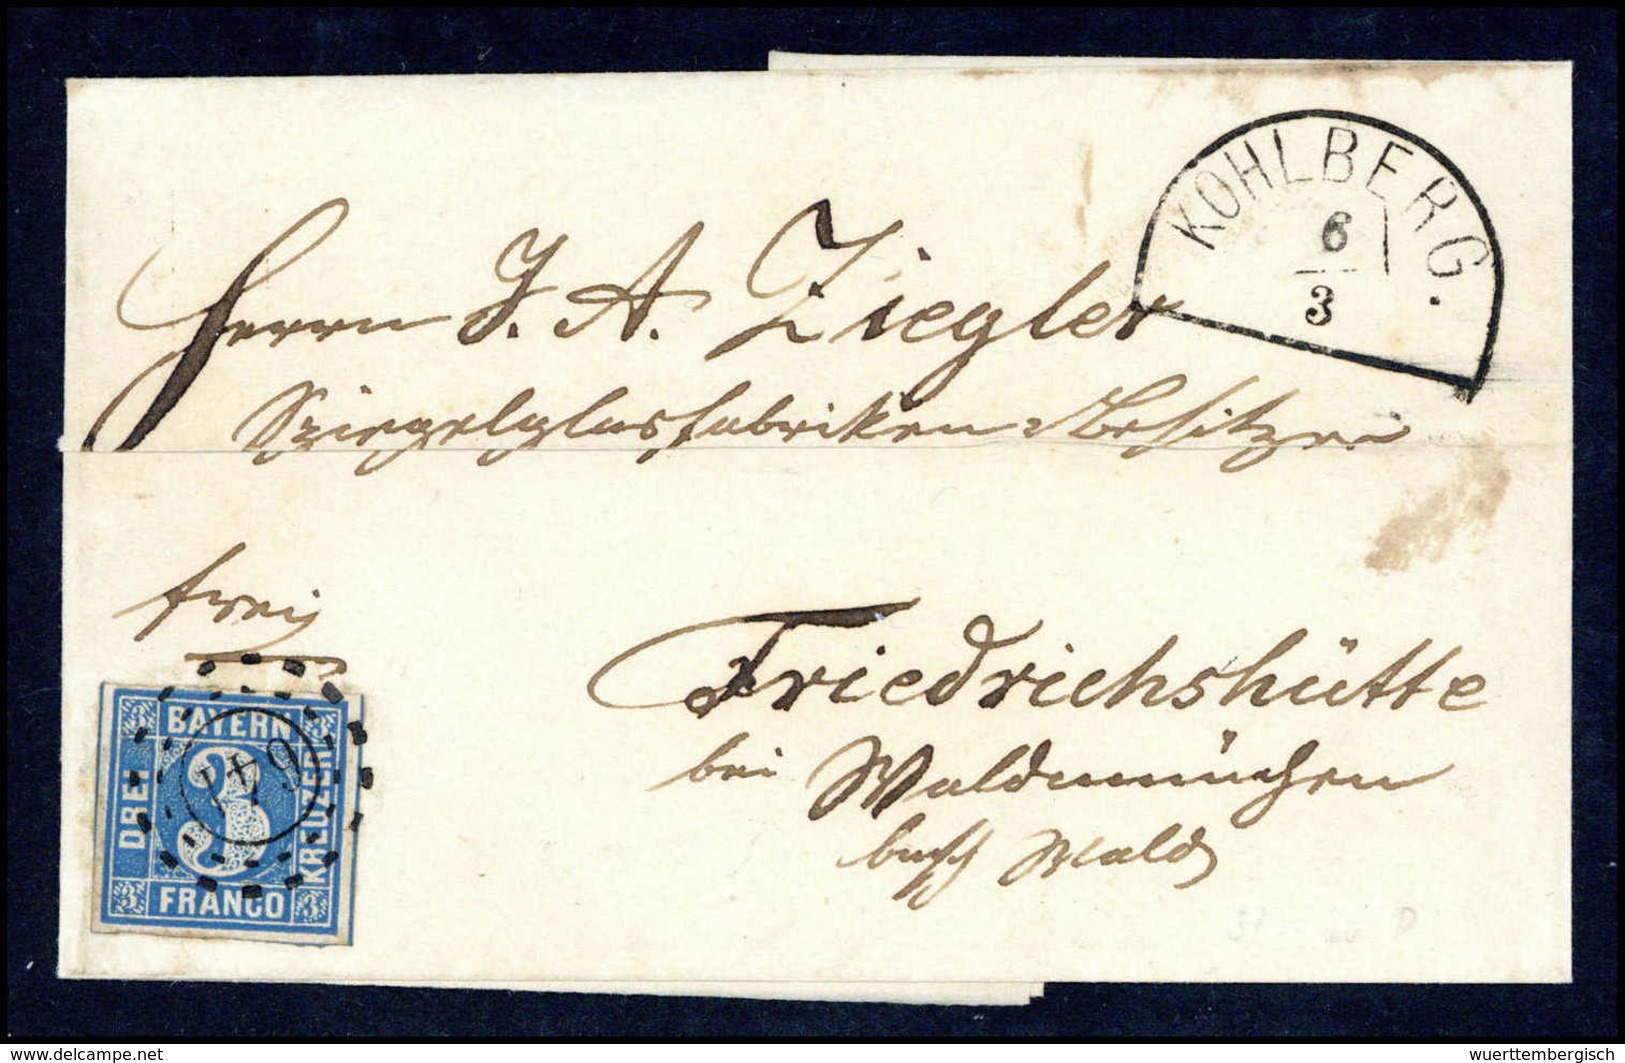 KOHLBERG.
6
3
Herrn J. A. Ziegler
Spiegelglasfabriken Besitzer
frei
BAYERN
DREI
KREUZER
FRANCO
3
3
3
3
3
641
Friedrichshütte
bei Waldmünchen
Wald
delcampe.net
wuerttembergisch